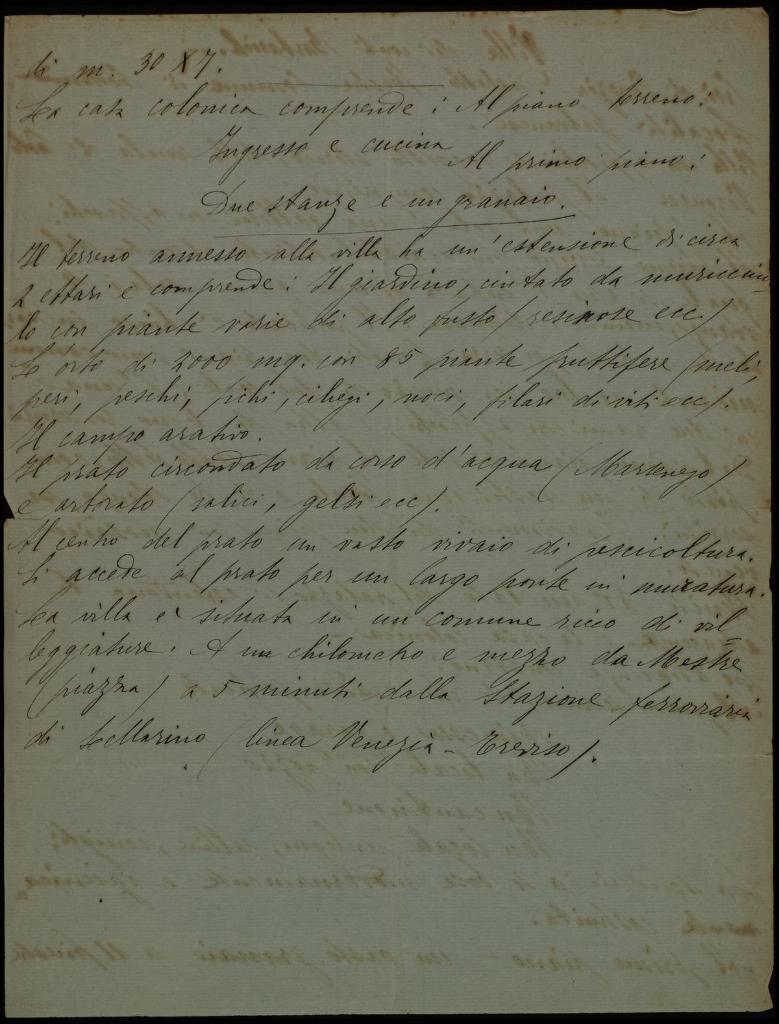 di m. 30 X 7.
La casa colonica comprende: Al piano terreno:
Ingresso e cucina Al primo piano:
Due stanze e un granaio.
Il terreno annesso alla villa ha un'estensione di circa
2 ettari e comprende: Il giardino, cintato da muriccio
lo con piante varie di alto fusto (resinose ecc)
L'orto di 2000 mq. con 85 piante fruttifere (meli,
peri, peschi, fichi, ciliegi, noci, filari di viti ecc).
Il campo arativo.
Il prato circondato da corso d'acqua (Marzenego)
e arborato (salici, gelsi ecc).
Al centro del prato un vasto vivaio di pescicoltura.
Si accede al prato per un largo ponte in muratura.
La villa è situata in un comune ricco di vil=
leggiature. A un chilometro e mezzo da Mestre
(piazza) a 5 minuti dalla Stazione ferroviaria
di Zellarino (linea Venezia - Treviso).